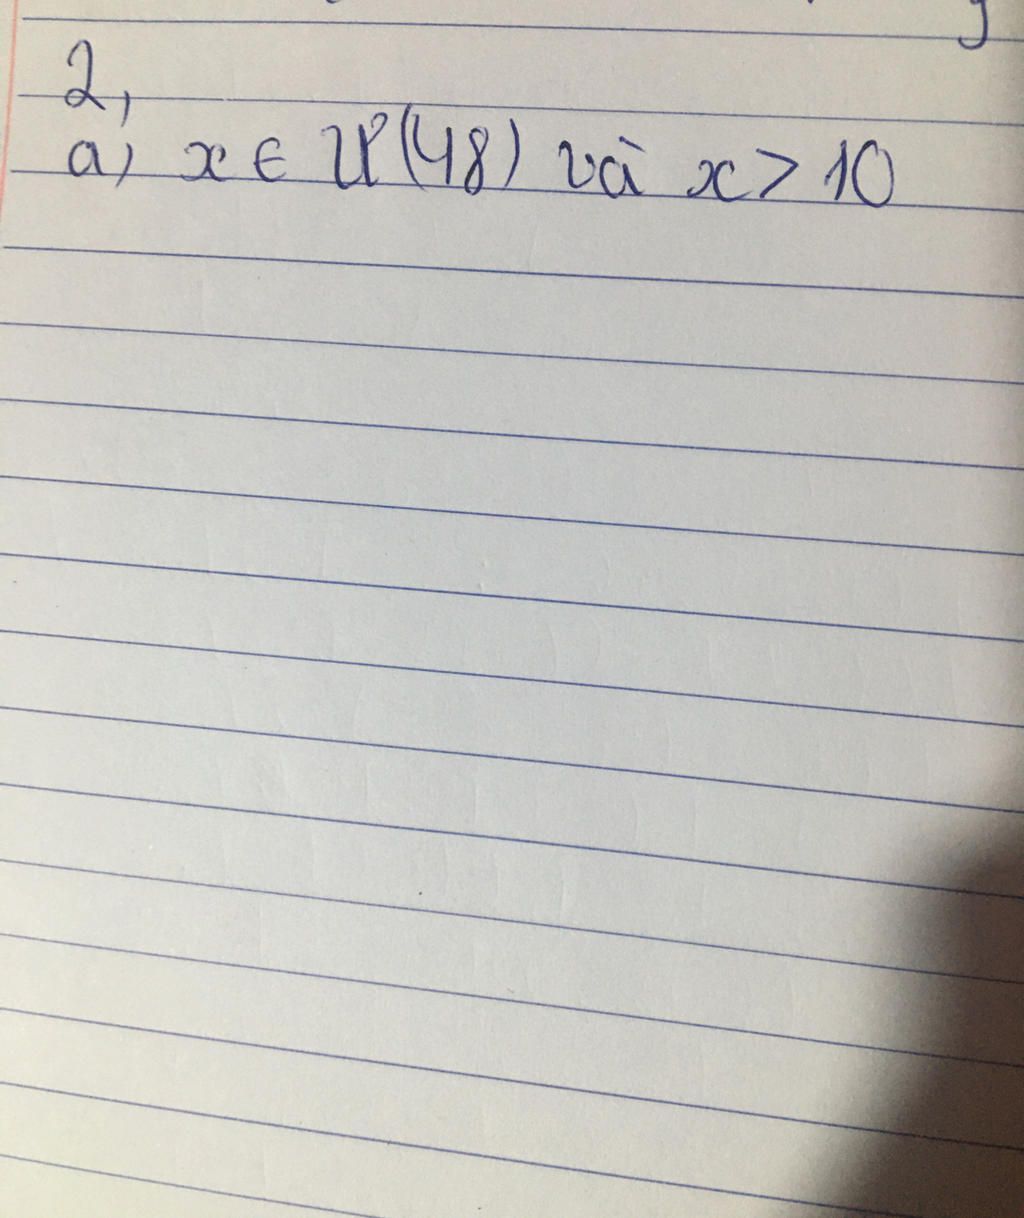 2,
a) x ∈ Ư(48) và x > 10